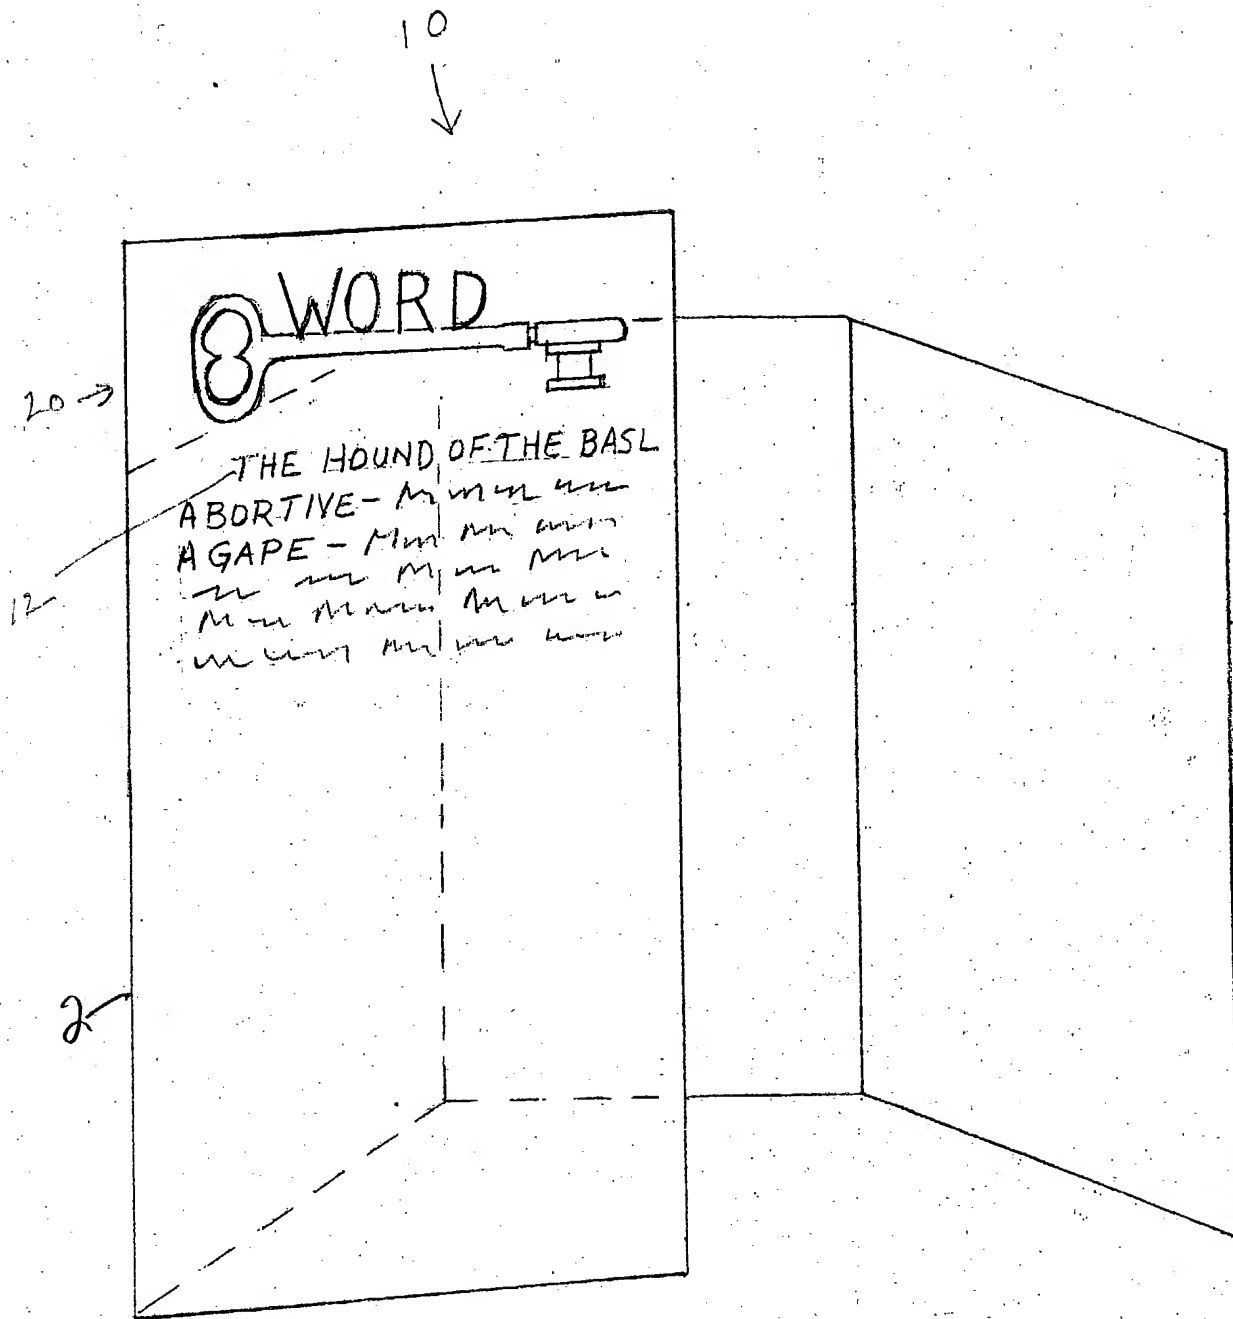 10
WORD
20
THE HOUND OF THE BASL
ABORTIVE-
AGAPE-
12
2